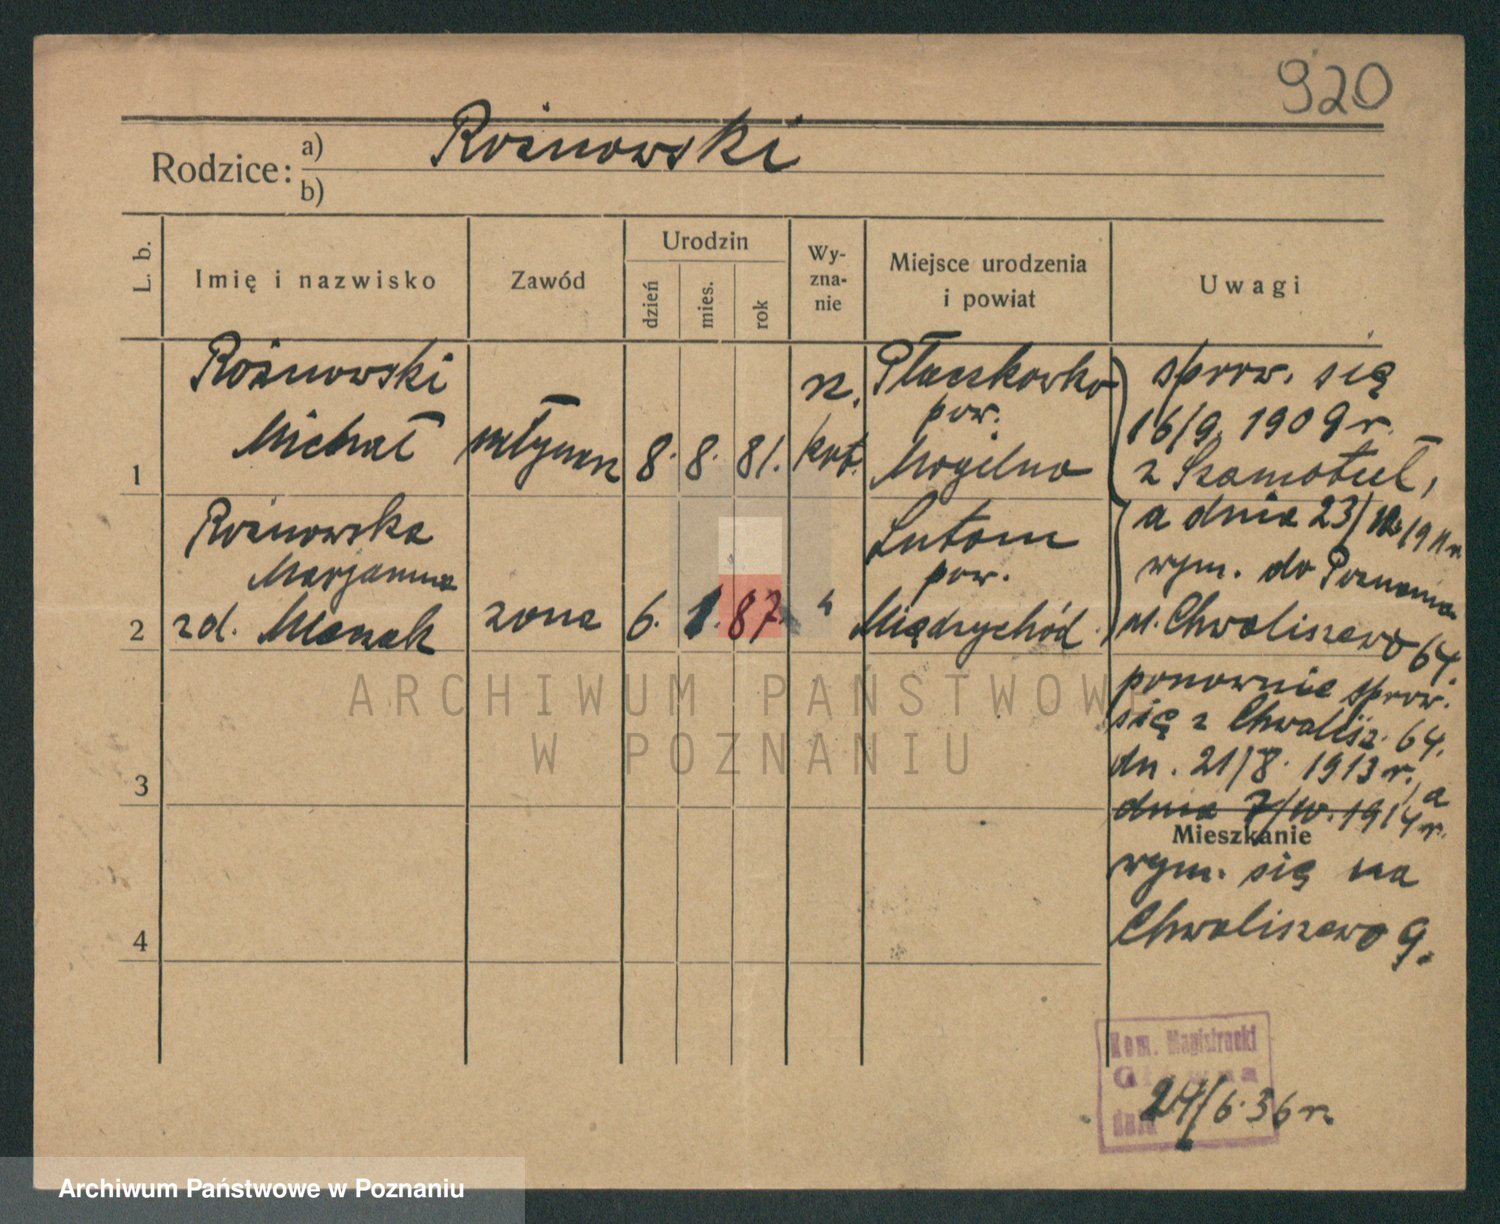 920
Rożnowski
Rodzice: a)
b)
L. b.
Imię i nazwisko
Zawód
Urodzin
dzień
mies.
rok
Wy-
zna-
nie
Miejsce urodzenia
i powiat
Uwagi
1
Rożnowski
Michał
młynarz
8. 8. 81.
rz.
kat.
Płaczkowko
pow.
Mogilno
sprow. się
16/9 1909 r.
z Szamotuł,
2
Rożnowska
Marjanna
zd.
żona
6. 1. 87.
"
Lutom
pow.
Międzychód
a dnia 23/ 1911 r.
wym. do Poznania
ul. Chwaliszewo 64.
3
ponownie sprow.
się z Chwalisz. 64.
dn. 21/8. 1913 r., a
dnia 7/IV. 1914 r.
Mieszkanie
wym. się na
4
Chwaliszewo 9.
Kom. Magistracki
Główna
dnia
24/6.36 r.
ARCHIWUM PAŃSTWOWE
W POZNANIU
Archiwum Państwowe w Poznaniu